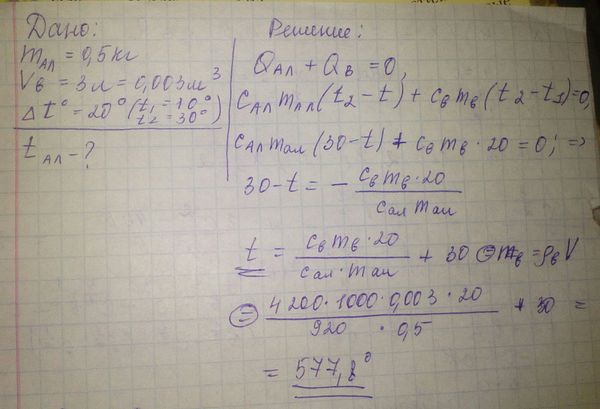 Дано:
m_Ал = 0,5 кг
V_В = 3 л = 0,003 м³
Δt° = 20° (t₁ = 10°
t₂ = 30°)
t_Ал - ?
Решение:
Q_Ал + Q_В = 0,
c_Ал m_Ал (t₂ - t) + c_в m_в (t₂ - t₁) = 0,
c_Ал m_ал (30 - t) + c_в m_в · 20 = 0; =>
30 - t = - c_в m_в · 20 / c_ал m_ал
t = c_в m_в · 20 / c_ал · m_ал + 30 = m_в = ρ_в V
= 4200 · 1000 · 0,003 · 20 / 920 · 0,5 + 30 =
= 577,8°